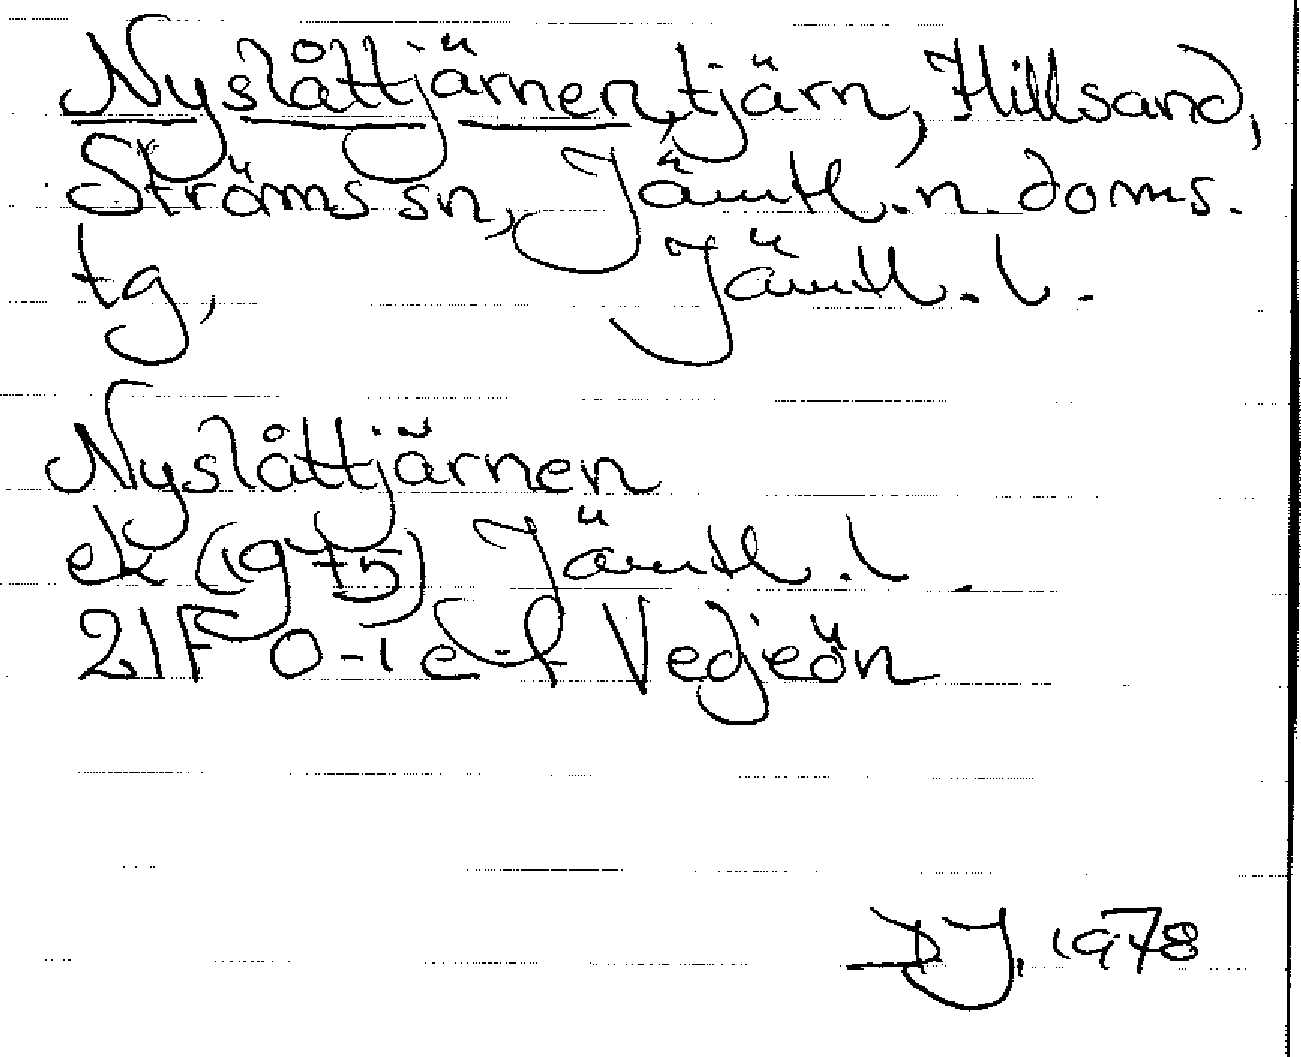 Nyslåttjärnen, tjärn, Hillsand,
Ströms sn, Jämtl. n. doms.
tg, Jämtl. l.
Nyslåttjärnen
ek (1975) Jämtl. l.
21F 0-1 e-f Vedjeön
DJ, 1978